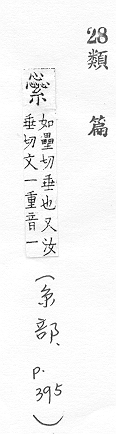 28 類 篇
繠
如壘切垂也又汝
垂切文一重音一
(糸部, p. 395)